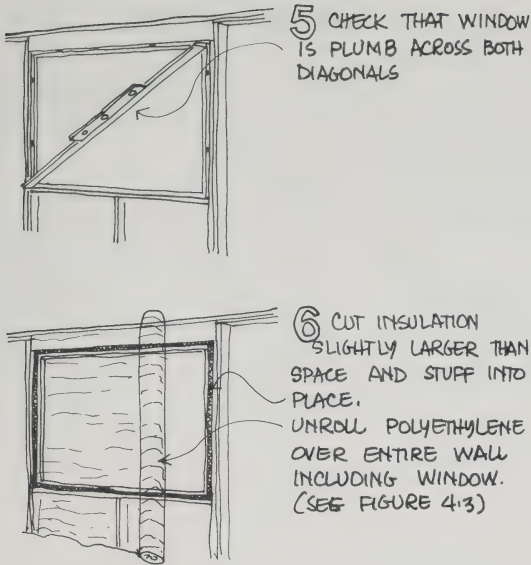 5 CHECK THAT WINDOW
IS PLUMB ACROSS BOTH
DIAGONALS
6 CUT INSULATION
SLIGHTLY LARGER THAN
SPACE AND STUFF INTO
PLACE.
UNROLL POLYETHYLENE
OVER ENTIRE WALL
INCLUDING WINDOW.
(SEE FIGURE 4.3)